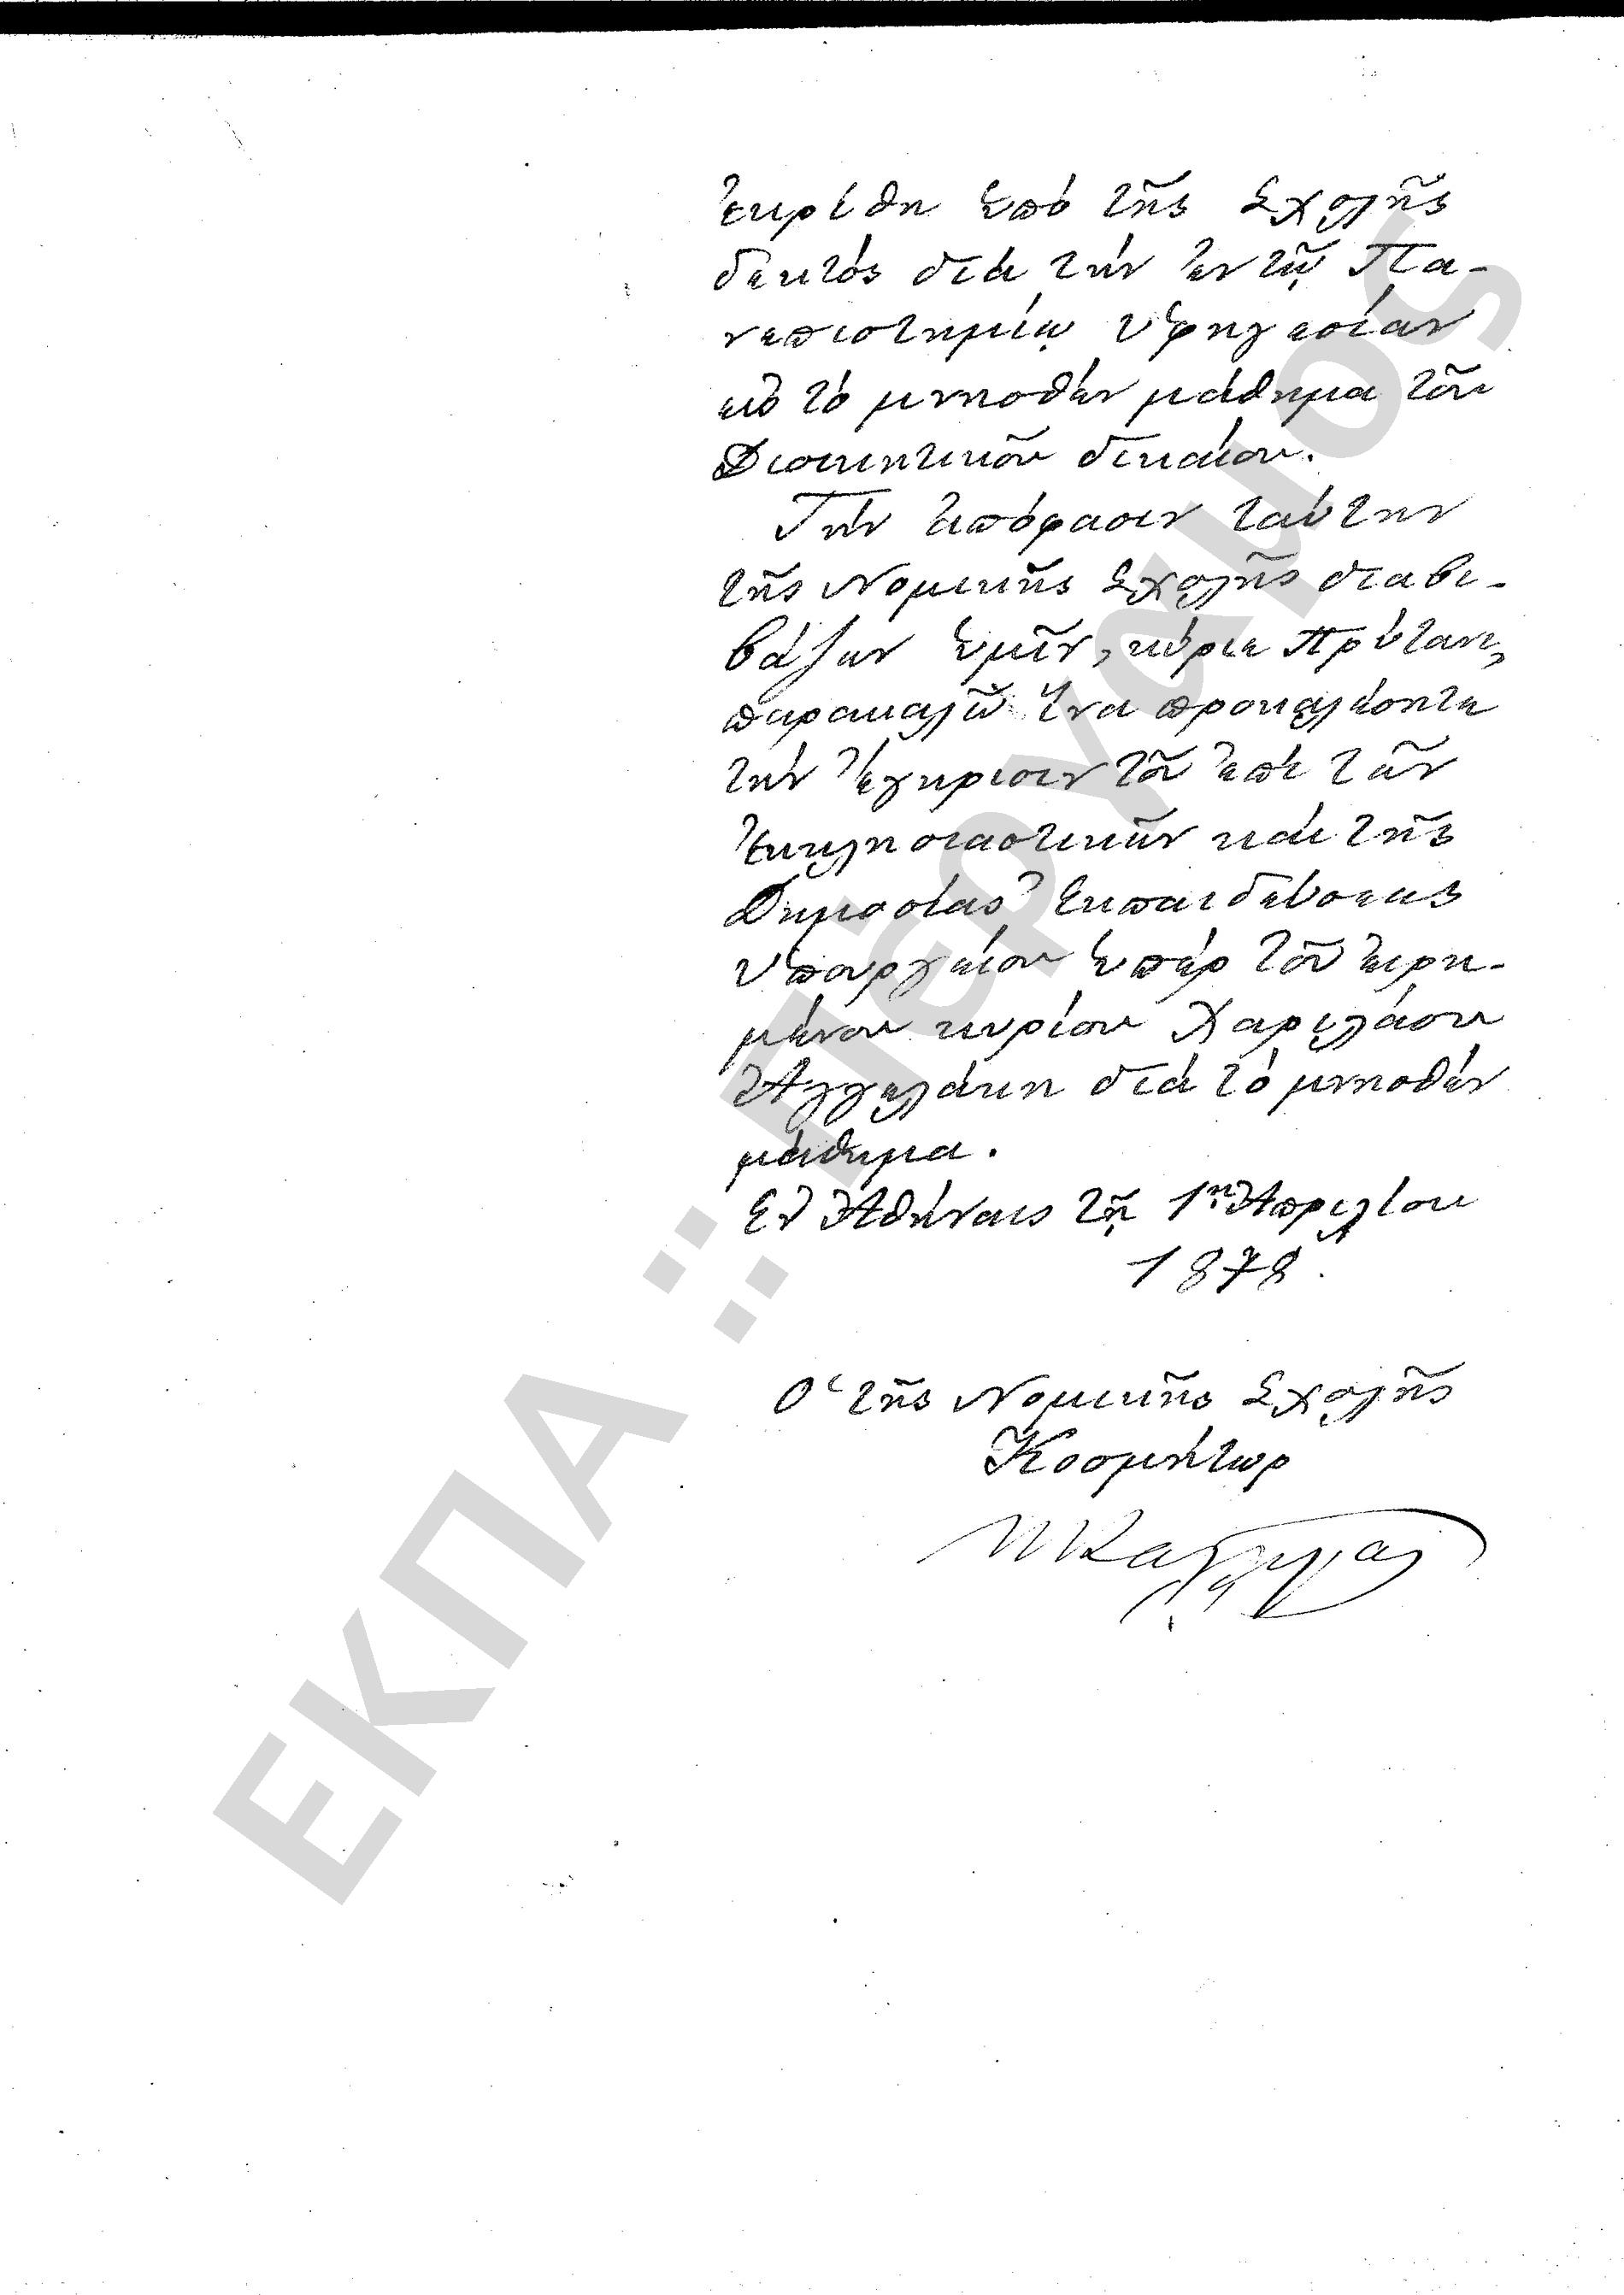 ἐκρίθη ὑπό τῆς Σχολῆς
δεκτός διά τήν ἐν τῷ Πα-
νεπιστημίῳ ὑφηγεσίαν
εἰς τό μνησθέν μάθημα τοῦ
Διοικητικοῦ δικαίου.
Τήν ἀπόφασιν ταύτην
τῆς Νομικῆς Σχολῆς διαβι-
βάζων ὑμῖν, κύριε Πρύτανι,
παρακαλῶ ἵνα προκαλέσητε
τήν ἔγκρισιν τοῦ ἐπί τῶν
Ἐκκλησιαστικῶν καί τῆς
Δημοσίας Ἐκπαιδεύσεως
Ὑπουργείου ὑπέρ τοῦ εἰρη-
μένου κυρίου Χαριλάου
Ἀγγελάκη διά τό μνησθέν
μάθημα.
Ἐν Ἀθήναις τῇ 1ῃ Ἀπριλίου
1878.
Ὁ τῆς Νομικῆς Σχολῆς
Κοσμήτωρ
Π Καλλιγᾶς
ΕΚΠΑ :: Πέργαμος